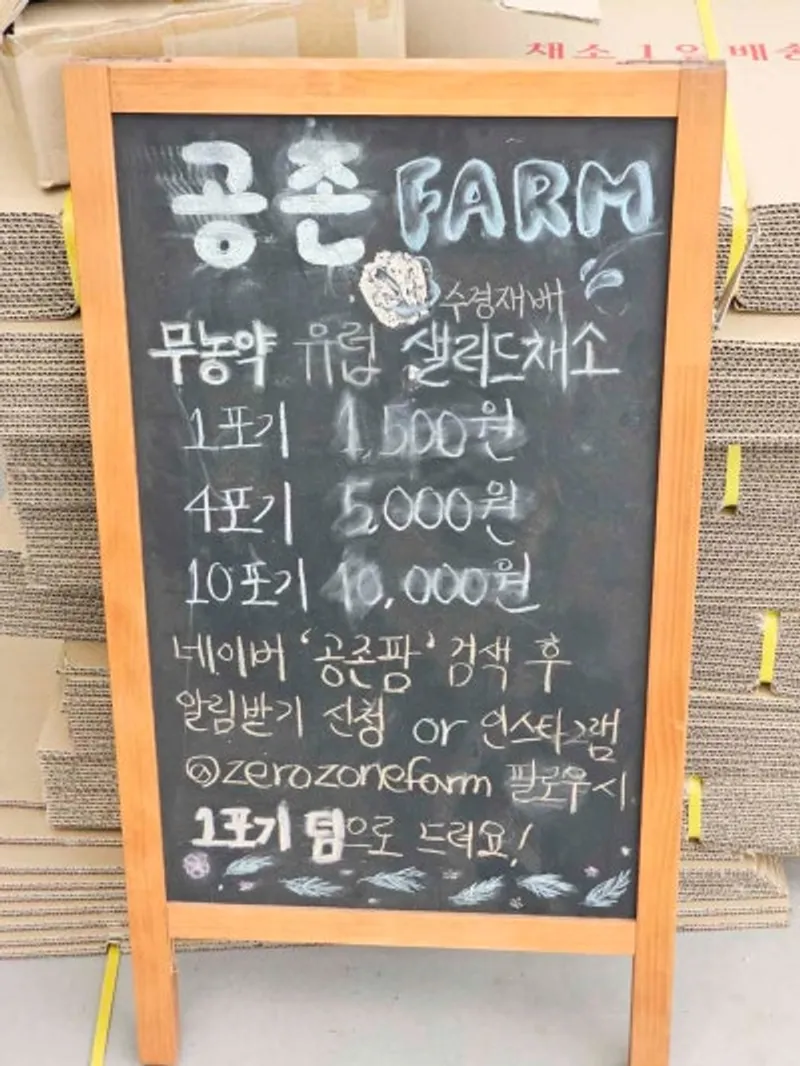 채소 1인 배송
공존 FARM
수경재배
무농약 유럽 샐러드채소
1포기 1,500원
4포기 5,000원
10포기 10,000원
네이버 '공존팜' 검색 후
알림받기 신청 or 인스타그램
@zerozonefarm 팔로우시
1포기 덤으로 드려요!